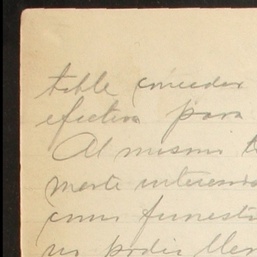 table conceder
efectiva para
Al mismo
mente interesa
como funest
no podia lle